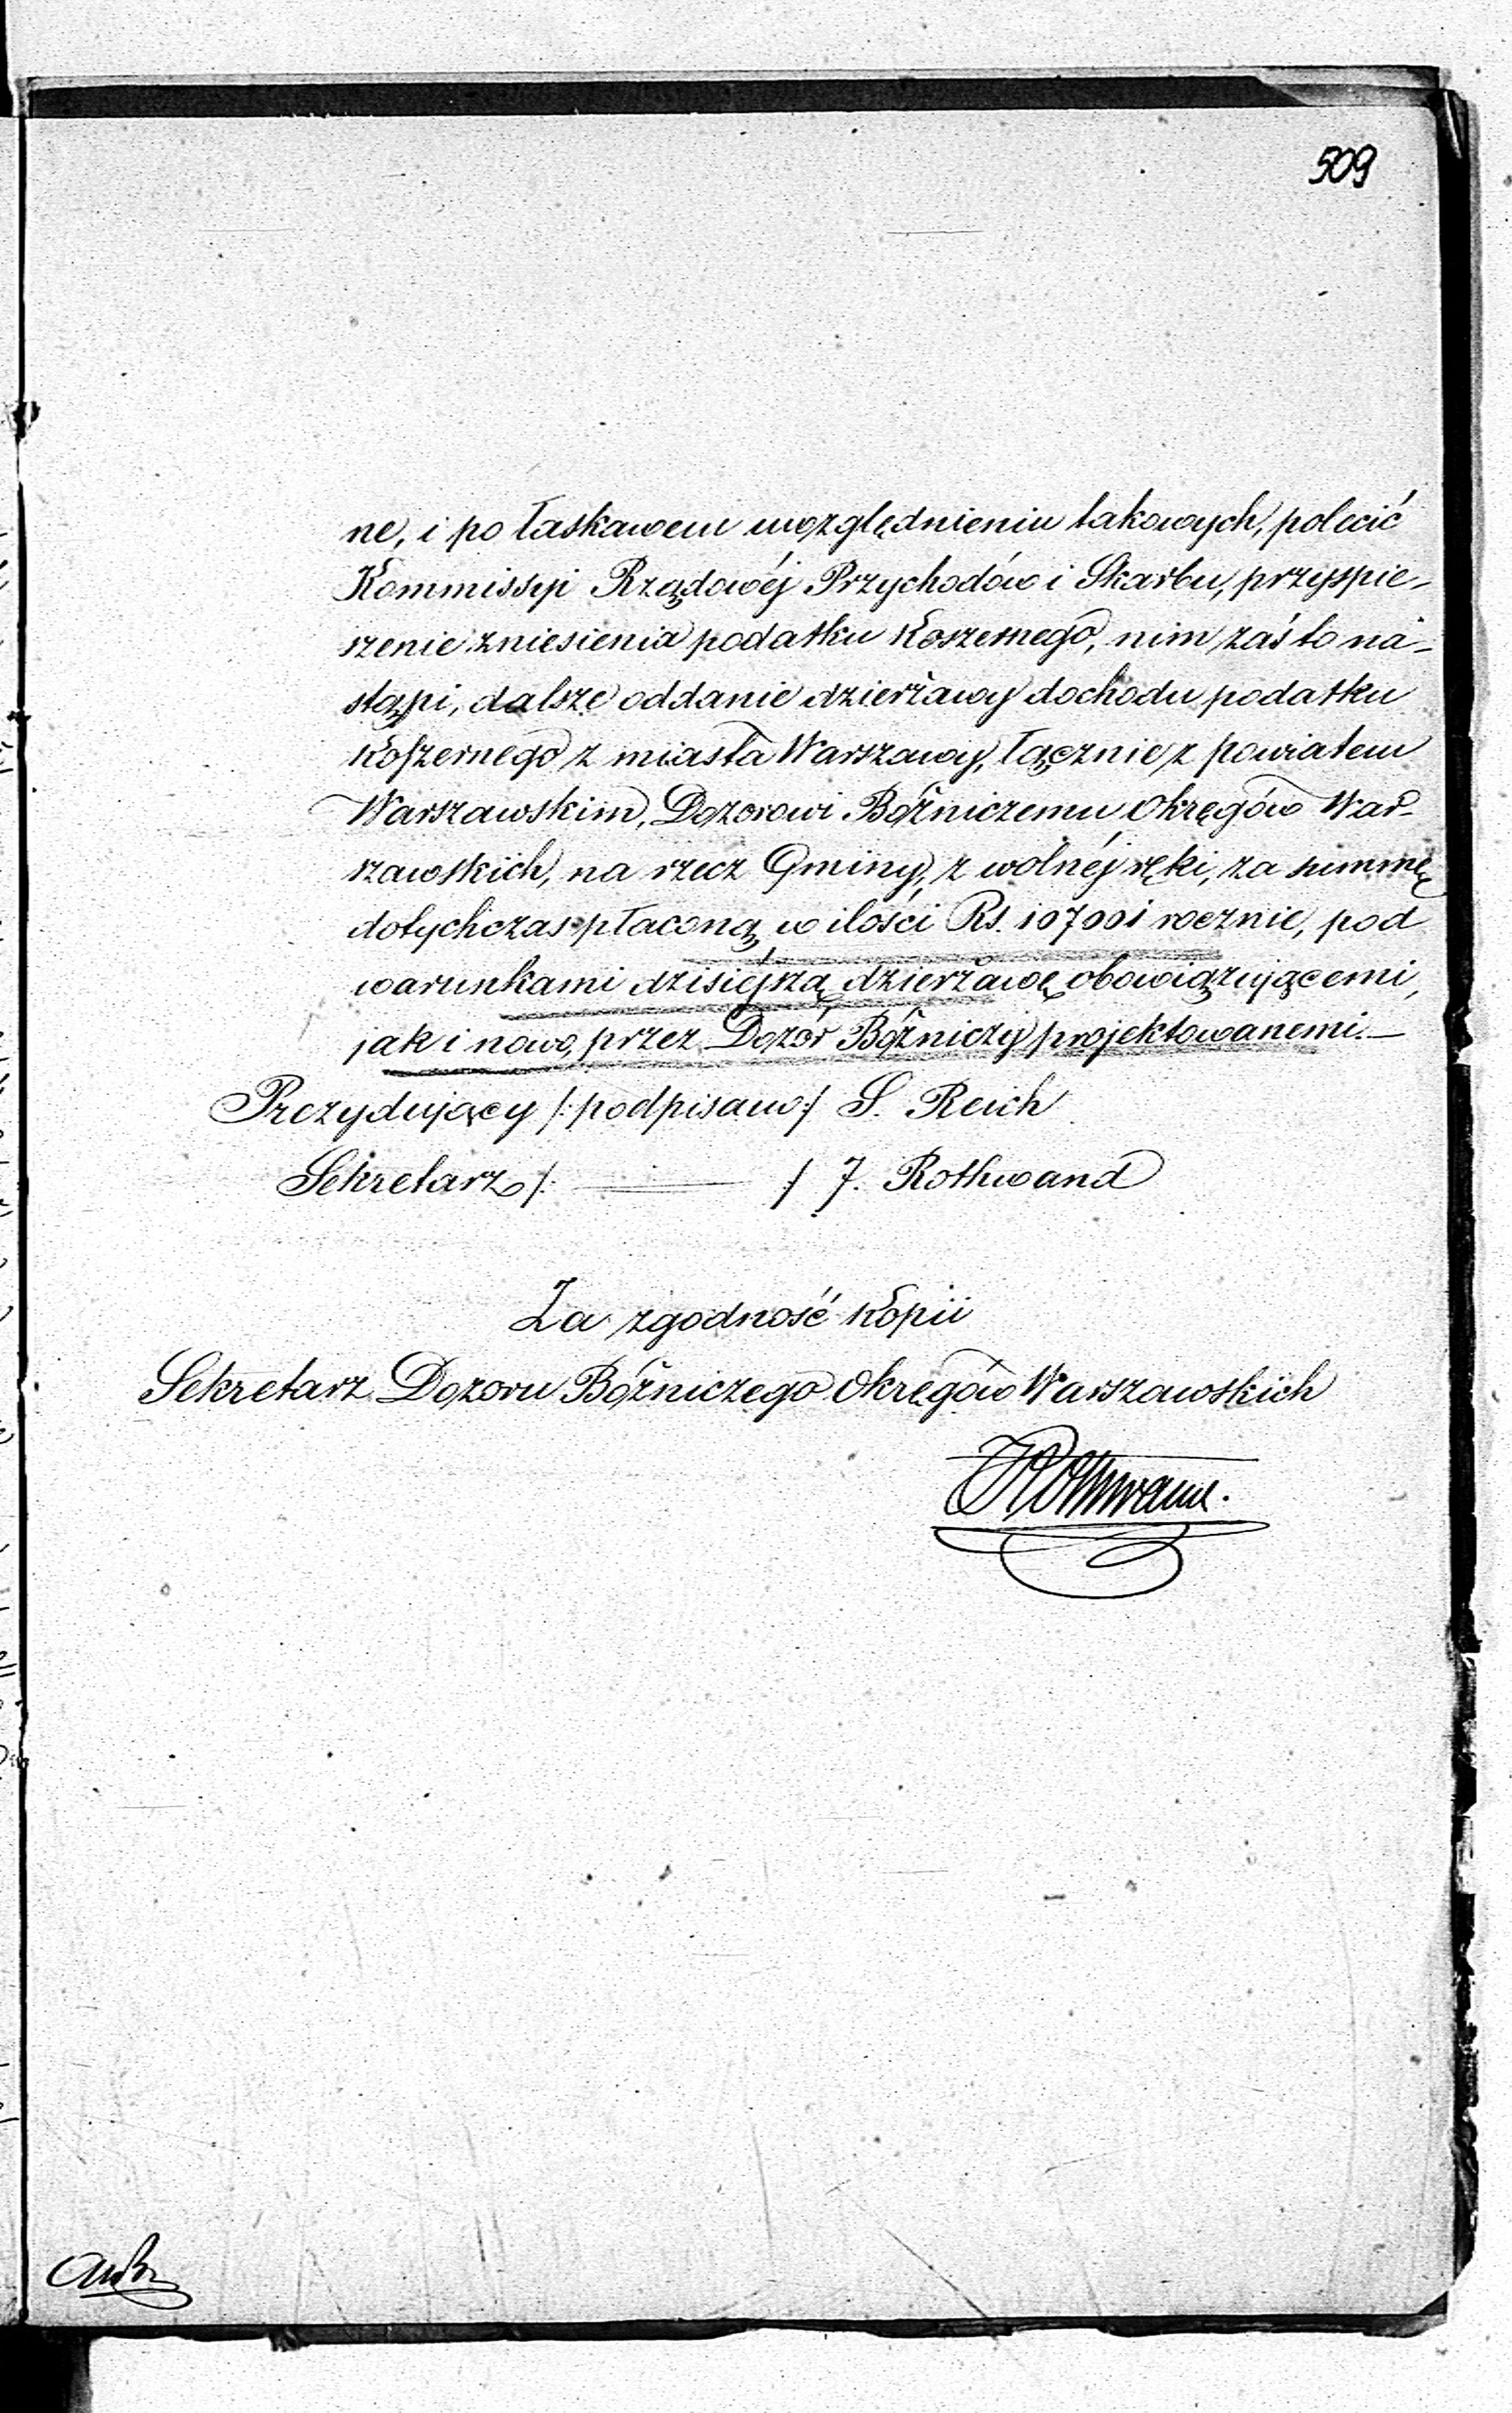 509
ne, i po łaskawem uwzględnieniu takowych, polecić
Kommissyi Rządowéj Przychodów i Skarbu, przyspie-
szenie zniesienia podatku Koszernego, nim zaś to na-
stąpi, dalsze oddanie dzierżawy dochodu podatku
Koszernego z miasta Warszawy, łącznie z powiatem
Warszawskim, Dozorowi Bóżniczemu Okręgów War-
szawskich, na rzecz Gminy, z wolnéj ręki, za summę
dotychczas płaconą w ilości Rs. 107001 rocznie, pod
warunkami dzisiéjszą dzierżawę obowiązującemi,
jak i nowo, przez Dozór Bóżniczy projektowanemi.—
Prezydujący /: podpisano :/ S. Reich
Sekretarz /: ——— :/ J. Rothwand
Za zgodność kopii
Sekretarz Dozoru Bóżniczego Okręgów Warszawskich
JRothwand.